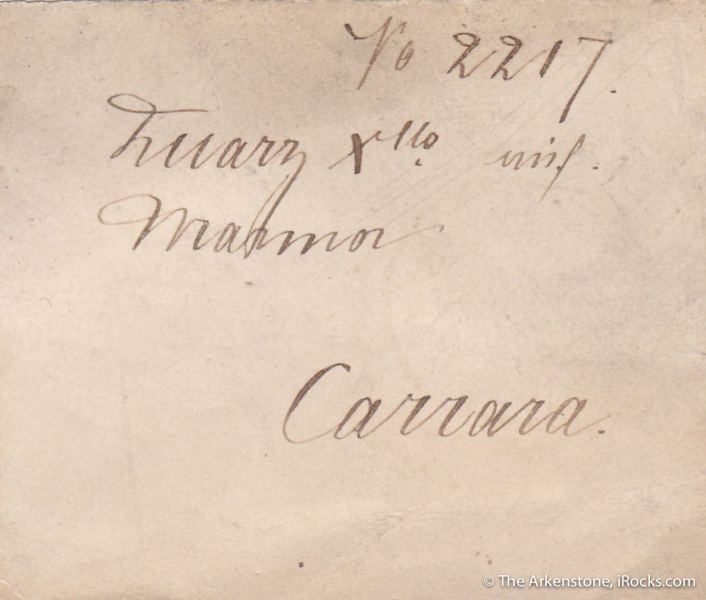 No 2217.
Quarz Xllo auf.
Marmor
Carrara.
© The Arkenstone, iRocks.com